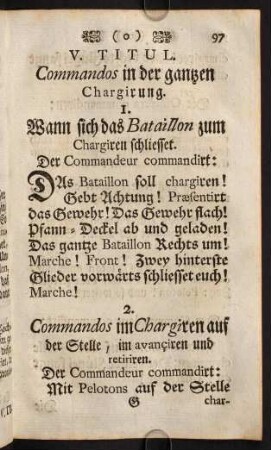 ( o ) 97
V. TITUL.
Commandos in der gantzen
Chargirung.
1.
Wann sich das Bataillon zum
Chargiren schliesset.
Der Commandeur commandirt:
DAs Bataillon soll chargiren!
Gebt Achtung! Præsentirt
das Gewehr! Das Gewehr flach!
Pfann-Deckel ab und geladen!
Das gantze Bataillon Rechts um!
Marche! Front! Zwey hinterste
Glieder vorwärts schliesset euch!
Marche!
2.
Commandos im Chargiren auf
der Stelle, im avançiren und
retiriren.
Der Commandeur commandirt:
Mit Pelotons auf der Stelle
G char-